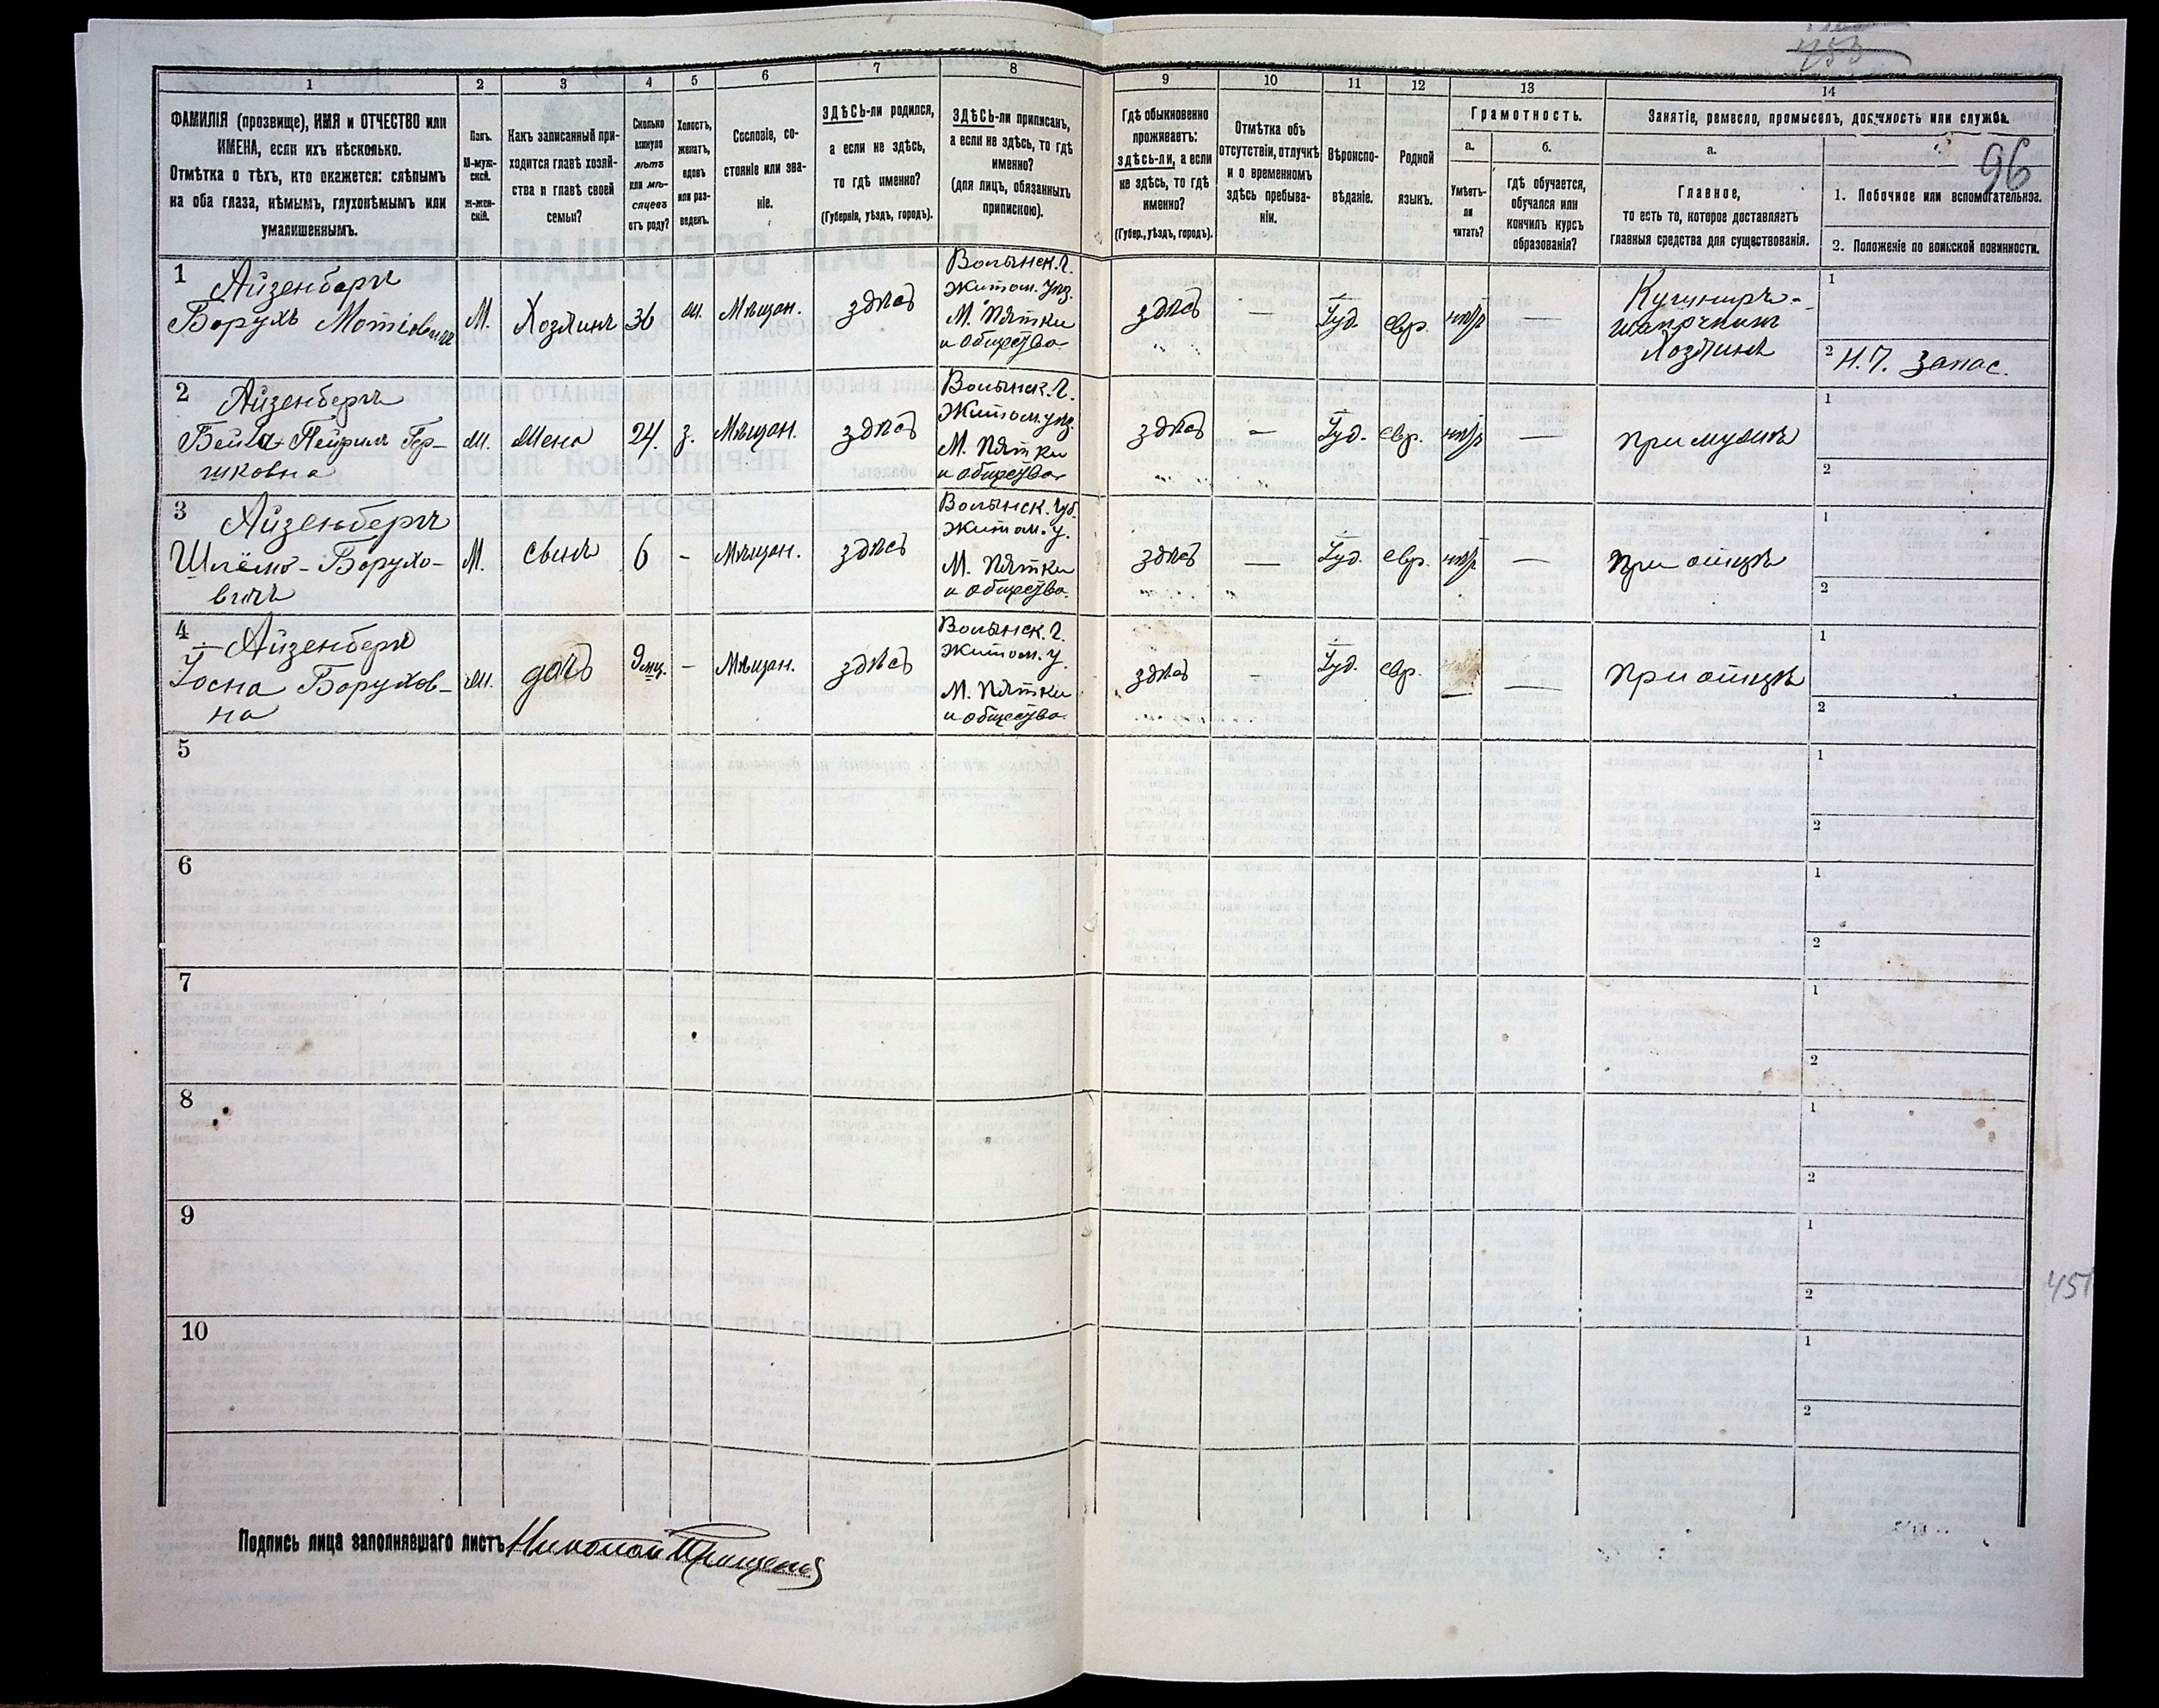 753
96
1
2
3
4
5
6
7
8
9
10
11
12
13
14
ФАМИЛІЯ (прозвище), ИМЯ и ОТЧЕСТВО или
ИМЕНА, если ихъ нѣсколько.
Отмѣтка о тѣхъ, кто окажется: слѣпымъ
на оба глаза, нѣмымъ, глухонѣмымъ или
умалишеннымъ.
Полъ.
М-муж-
ской.
ж-жен-
скій.
Какъ записанный при-
ходится главѣ хозяй-
ства и главѣ своей
семьи?
Сколько
минуло
лѣтъ
или мѣ-
сяцевъ
отъ роду?
Холостъ,
женатъ,
вдовъ
или раз-
веденъ.
Сословіе, со-
стояніе или зва-
ніе.
ЗДѢСЬ-ли родился,
а если не здѣсь,
то гдѣ именно?
(Губернія, уѣздъ, городъ).
ЗДѢСЬ-ли приписанъ,
а если не здѣсь, то гдѣ
именно?
(для лицъ, обязанныхъ
припискою).
Гдѣ обыкновенно
проживаетъ:
здѣсь-ли, а если
не здѣсь, то гдѣ
именно?
(Губер., уѣздъ, городъ).
Отмѣтка объ
отсутствіи, отлучкѣ
и о временномъ
здѣсь пребыва-
ніи.
Вѣроиспо-
вѣданіе.
Родной
языкъ.
Грамотность.
а.
Умѣетъ-
ли
читать?
б.
гдѣ обучается,
обучался или
кончилъ курсъ
образованія?
Занятіе, ремесло, промыселъ, должность или служба.
а.
Главное,
то есть то, которое доставляетъ
главныя средства для существованія.
1. Побочное или вспомогательное.
2. Положеніе по воинской повинности.
1 Айзенбергъ
Борухъ Мотіовичъ
М.
Хозяинъ
36
ж.
Мѣщан.
здѣсь
Волынск. г.
Житом. уѣз.
М. Пятки
и общество
здѣсь
—
Іуд.
евр.
нѣтъ
—
Хозяинъ
1
2 Н. Ч. Запас.
2 Айзенбергъ
Гер-
шковна
ж.
Жена
24.
з.
Мѣщан.
здѣсь
Волынск. г.
Житом. уѣз.
М. Пятки
и общество
здѣсь
—
Іуд.
евр.
нѣтъ
—
при мужѣ
1
2
3 Айзенбергъ
Шлёмо-Борухо-
вичъ
М.
сынъ
6
-
Мѣщан.
здѣсь
Волынск. губ.
Житом. у.
М. Пятки
и общество.
здѣсь
—
Іуд.
евр.
нѣтъ
—
при отцѣ
1
2
4 Айзенбергъ
Іосна Борухов-
на
ж.
дочь
9 мц.
-
Мѣщан.
здѣсь
Волынск. г.
Житом. у.
М. Пятки
и общество.
здѣсь
-
Іуд.
евр.
—
—
при отцѣ
1
2
5
1
2
6
1
2
7
1
2
8
1
2
9
1
2
10
1
2
451
Подпись лица заполнявшаго листъ Николай